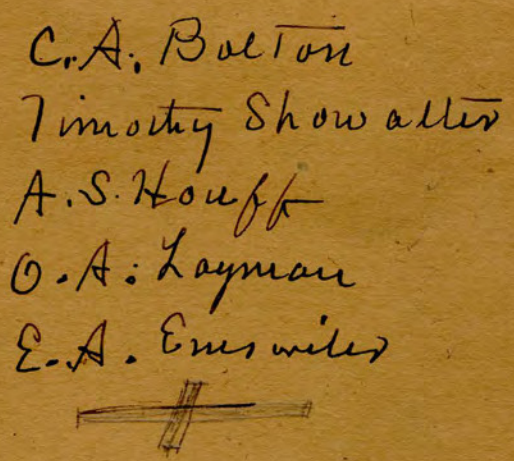 C. A. Bolton
Timothy Showalter
A. S. Houff
O. A. Layman
E. A. Enswiler